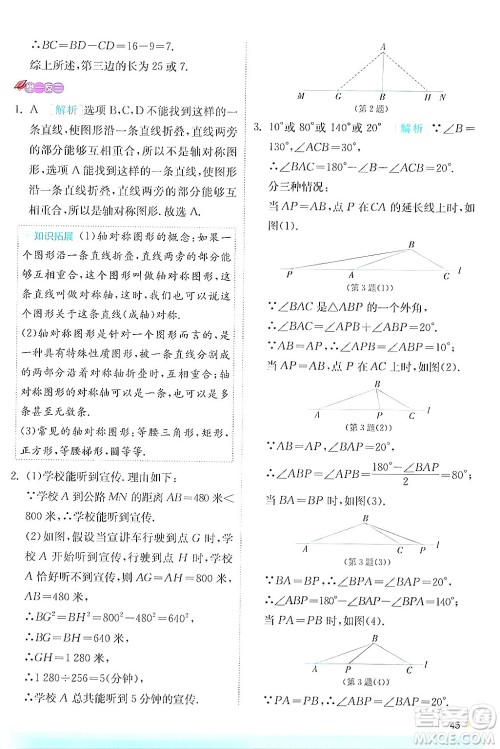 ∴BC=BD−CD=16−9=7.
综上所述,第三边的长为 25 或 7.
举一反三
1. A 解析 选项 B,C,D 不能找到这样的一
条直线,使图形沿一条直线折叠,直线两旁
的部分能够互相重合,所以不是轴对称图
形,选项 A 能找到这样的一条直线,使图
形沿一条直线折叠,直线两旁的部分能够
互相重合,所以是轴对称图形.故选 A.
知识拓展 (1)轴对称图形的概念:如果一
个图形沿一条直线折叠,直线两旁的部分
能够互相重合,这个图形叫做轴对称图形,
这条直线叫做对称轴,这时,我们也可以说
这个图形关于这条直线(成轴)对称.
(2)轴对称图形是针对一个图形而言的,
是一种具有特殊性质的图形,被一条直线
分割成的两部分沿着对称轴折叠时,互相
重合;轴对称图形的对称轴可以是一条,也
可以是多条甚至无数条.
(3)常见的轴对称图形:等腰三角形,矩形,
正方形,等腰梯形,圆等等.
2. (1)学校能听到宣传. 理由如下:
∵学校 A 到公路 MN 的距离 AH=480 米<
800 米,∴学校能听到宣传.
(2)如图,假设当宣讲车行驶到点 G 时,学
校 A 开始听到宣传,行驶到点 B 时,学校
A 恰好不能听到宣传,
则 AG=AB=800 米,
∴BG²=BH²=800²−480²=640²,
∴BG=BH=640 米,
∴GH=1 280 米,
∴1 280÷256=5(分钟),
∴学校 A 总共能听到 5 分钟的宣传.
A
M G B H N
(第 2 题)
3. 10°或 80°或 140°或 20° 解析 ∵∠B=
30°,∠C=50°,
∴∠BAC=180°−∠B−∠C=100°.
分三种情况:
当 AP=AB,点 P 在 CA 的延长线上时,
如图(1).
B
P A C l
(第 3 题(1))
∵∠BAC 是△ABP 的一个外角,
∴∠BAC=∠APB+∠ABP=100°.
∵AB=AP,∴∠ABP=∠APB=50°.
当 AP=AB,点 P 在 AC 的延长线上时,
如图(2).
B
A C P l
(第 3 题(2))
∵AB=AP,∴∠ABP=∠APB=(180°−∠BAP)/2
=40°.
当 BA=BP 时,如图(3).
B
A P C l
(第 3 题(3))
∵BA=BP,∴∠BAP=∠BPA=80°,
∴∠ABP=180°−∠BAP−∠BPA=20°.
当 PA=PB 时,如图(4).
B
A P C l
(第 3 题(4))
∵PA=PB,∴∠ABP=∠BAP=80°.
45